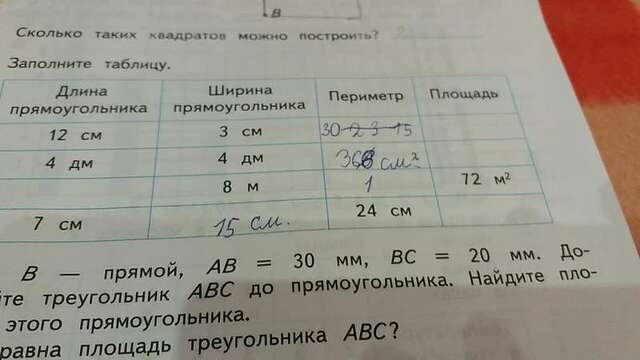 B
Сколько таких квадратов можно построить?
Заполните таблицу.
Длина прямоугольника Ширина прямоугольника Периметр Площадь
12 см 3 см 30-2 3-15
4 дм 4 дм см²
8 м 1 72 м²
7 см 15 см. 24 см
B — прямой, AB = 30 мм, BC = 20 мм. До-
йте треугольник ABC до прямоугольника. Найдите пло-
этого прямоугольника.
равна площадь треугольника ABC?